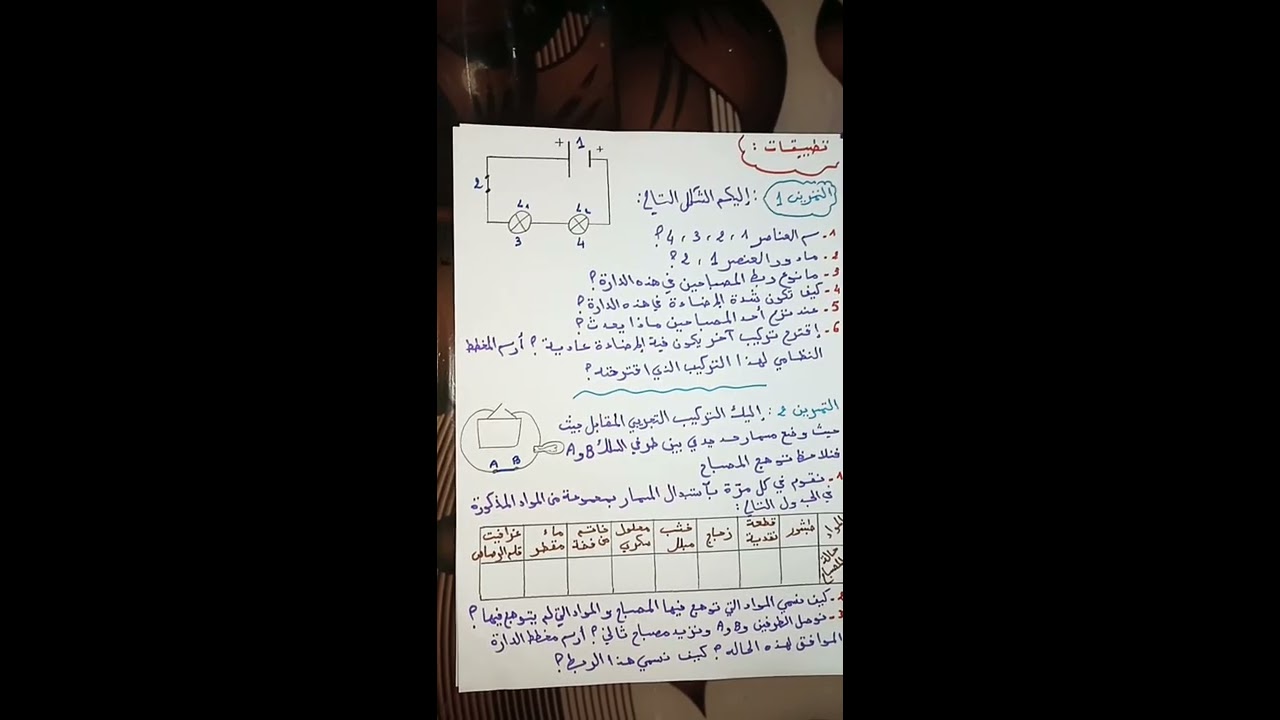 تطبيقات :
التمرين 1 : إليكم الشكل التالي :
+ 1 +
2
L1 L2
3 4
1- سم العناصر 1 ، 2 ، 3 ، 4 ؟
2- مادور العنصر 1 ، 2 ؟
3- ما نوع ربط المصباحين في هذه الدارة ؟
4- كيف تكون شدة الإضاءة في هذه الدارة ؟
5- عند نزع أحد المصباحين ماذا يحدث ؟
6- إقترح تركيب آخر يكون فيه الإضاءة عادية ؟ أرسم المخطط
النظامي لهذا التركيب الذي اقترحته ؟
التمرين 2 : إليك التركيب التجريبي المقابل بحيث
حيث وضع مسمار حديدي بين طرفي السلك A و B
فنلاحظ توهج المصباح
A B
1- نقوم في كل مرة بآستبدال المسمار بمجموعة من المواد المذكورة
في الجدول التالي :
المواد طبشور قطعة نقدية زجاج خشب مبلل محلول سكري خاتم من فضة ماء مقطر غرافيت قلم الرصاص
حالة المصباح
2- كيف نسمي المواد التي توهج فيها المصباح والمواد التي لم يتوهج فيها ؟
3- نوصل الطرفين A و B ونزيد مصباح ثاني ؟ أرسم مخطط الدارة
الموافق لهذه الحالة ؟ كيف نسمي هذا الربط ؟